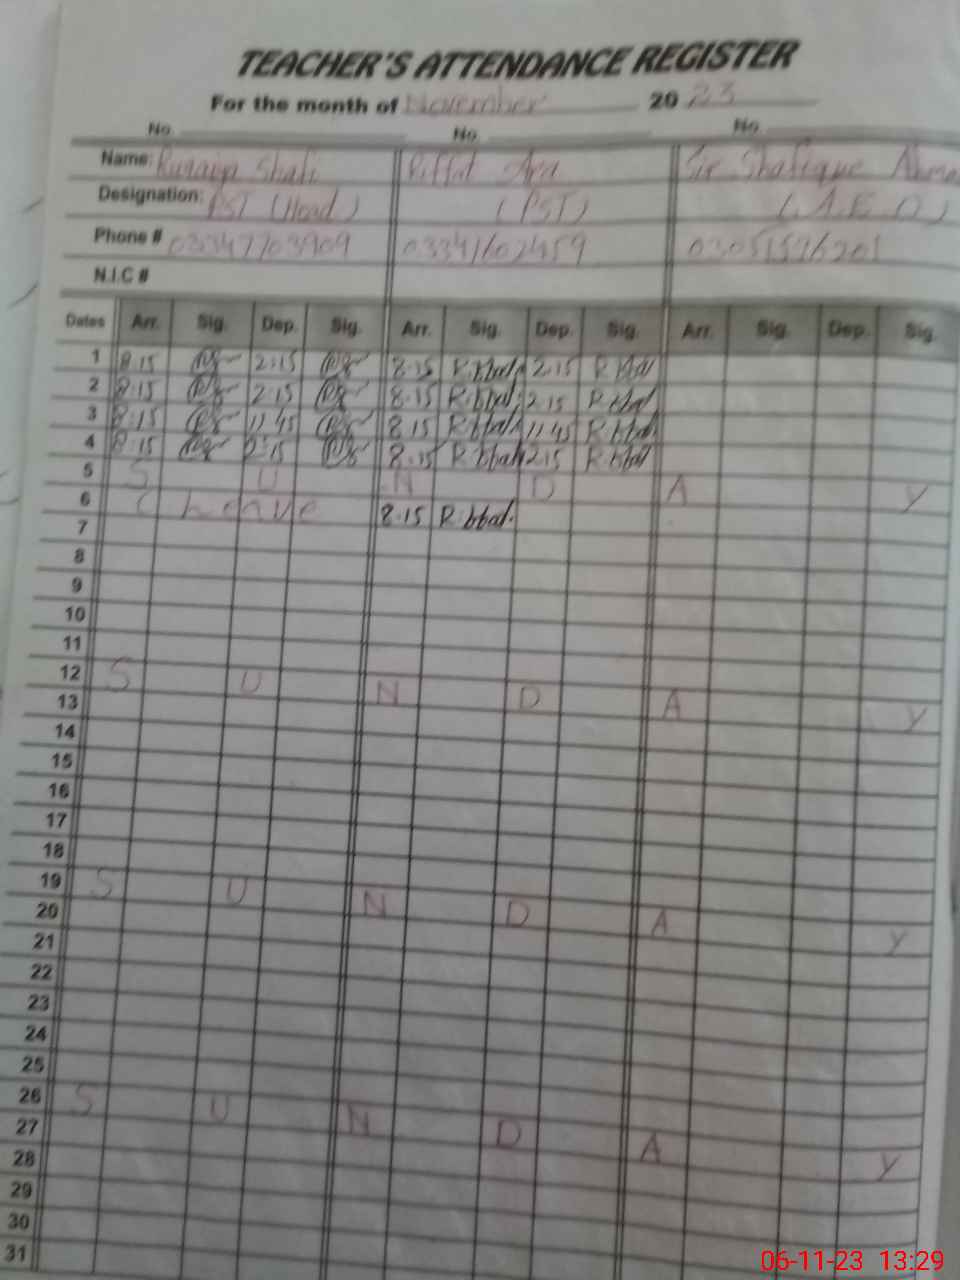 TEACHER'S ATTENDANCE REGISTER
For the month of November 20 23
No. No. No.
Name: Shafi Riffat Ara Sir Shafique
Designation: PST (Head) (PST) (A.E.O)
Phone # 03347703909 03341602459
N.I.C #
Dates Arr. Sig. Dep. Sig. Arr. Sig. Dep. Sig. Arr. Sig. Dep. Sig.
1 8:15 2:15 8:15 2:15
2 8:15 2:15 8:15 2:15
3 8:15 11:45 8:15 11:45
4 8:15 2:15 8:15 2:15
5 S U N D A Y
6 Leave 8:15
7
8
9
10
11
12 S U N D A Y
13
14
15
16
17
18
19 S U N D A Y
20
21
22
23
24
25
26 S U N D A Y
27
28
29
30
31
06-11-23 13:29